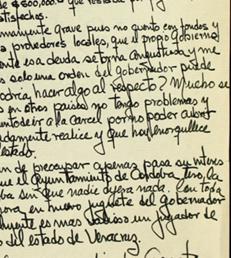 de $500,000.- que
tisfechos.
mamente grave pues no cuento con fondos y
a provedores locales, que el propio gobierno
ente esa deuda se torna angustiada y me
s solo una orden del gobernador puede
odría, hacer algo al respecto? Mucho se
s en otros países no tengo problemas y
a la carcel por no poder
damente realice y que hoy enorgullece
estado.
an de preocupar apenas pasa su interes
ue el Ayuntamiento de Cordoba
ba sin que nadie dijera nada. en
ora, en nuevo juguete del gobernador
lmente es mas valioso un jugador de
o del estado de Veracruz.